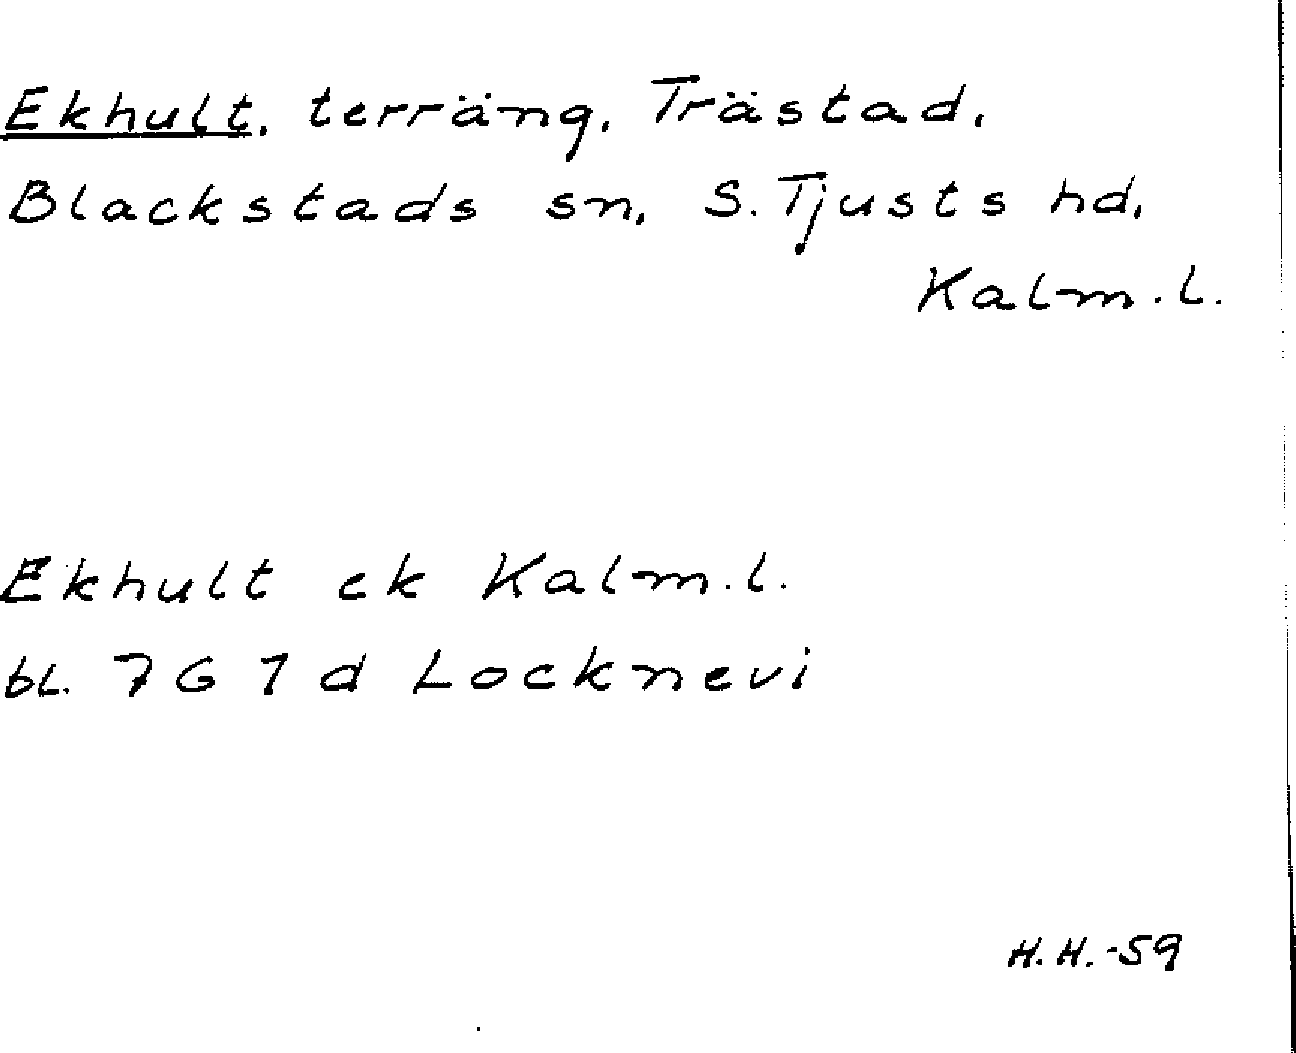 Ekhult, terräng, Trästad,
Blackstads sn, S. Tjusts hd,
Kalm. l.
Ekhult ek Kalm. l.
bl. 7 G 1 d Locknevi
H. H. -59